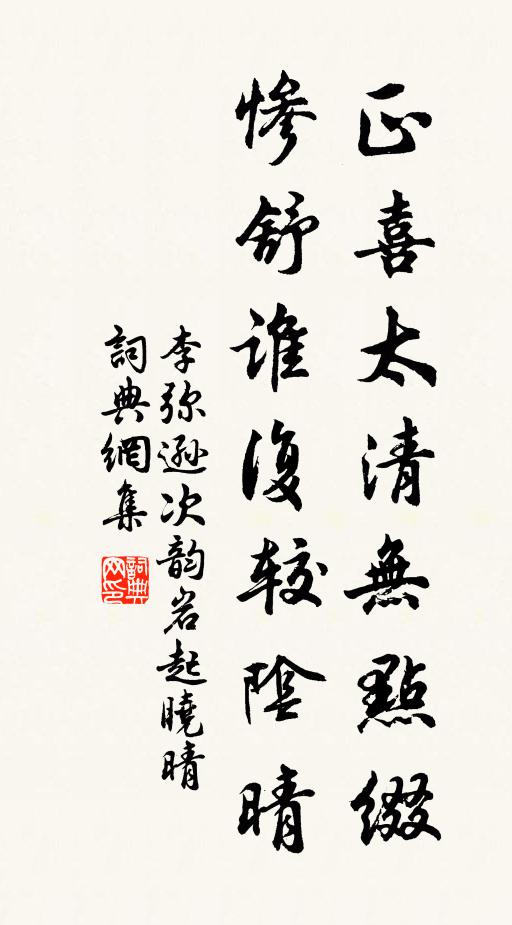 正喜太清無點綴
慘舒誰復較陰晴
李弥遜次韵岩起曉晴
詞典網集
詞典网印